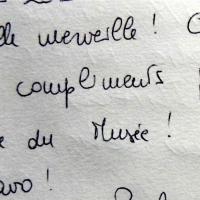 lle merveille !
compliments
du Musée !
avo !